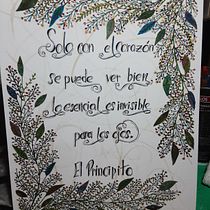 Solo con el corazón
se puede ver bien,
lo esencial es invisible
para los ojos.
El Principito